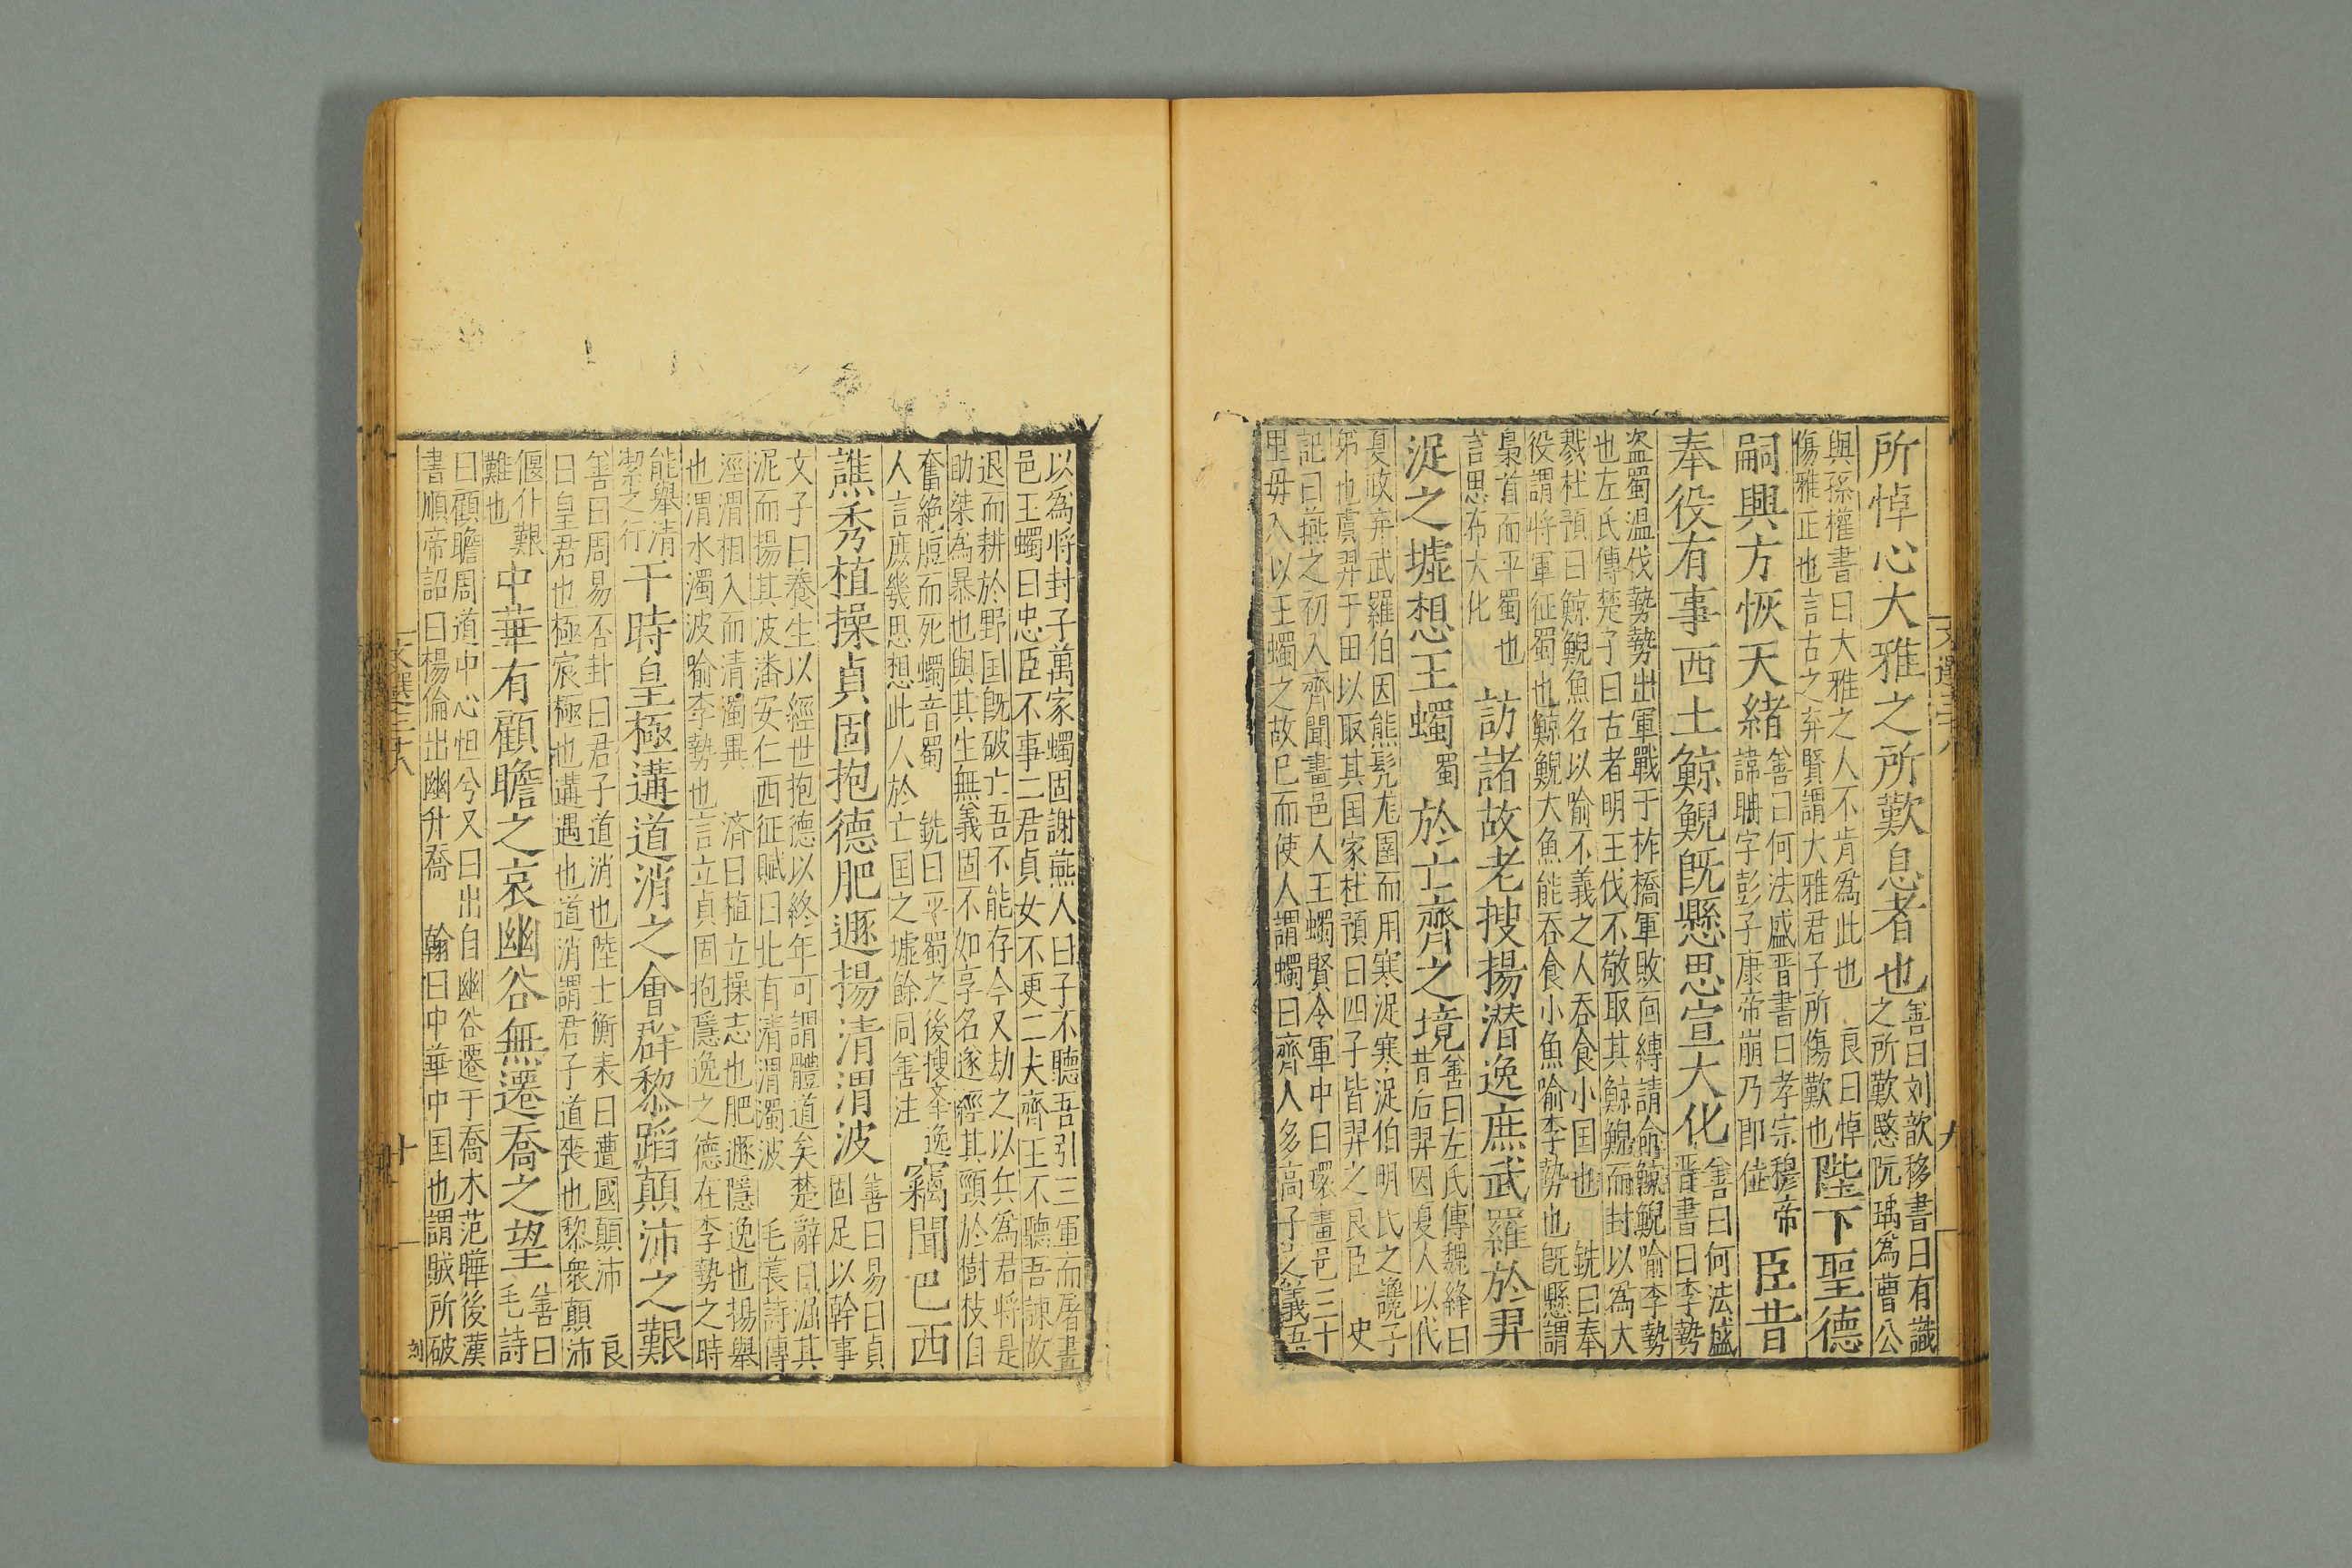 所悼心大雅之所歎息者也善曰刘歆移書曰有識
之所歎愍阮瑀為曹公
與孫權書曰大雅之人不肯為此也 良曰悼
傷雅正也言古之弃賢謂大雅君子所傷歎也陛下聖德
嗣興方恢天緒善曰何法盛晋書曰孝宗穆帝
諱聃字彭子康帝崩乃即位臣昔
奉役有事西土鯨鯢旣懸思宣大化善曰何法盛
晋書曰李勢
盗蜀温伐勢勢出軍戰于柞橋軍敗面縛請命鯨鯢喻李勢
也左氏傳楚子曰古者明王伐不敬取其鯨鯢而封以為大
戮杜預曰鯨鯢魚名以喻不義之人吞食小国也 銑曰奉
役謂将軍征蜀也鯨鯢大魚能吞食小魚喻李勢也旣懸謂
梟首而平蜀也
言思布大化訪諸故老搜揚潜逸庶武羅於羿
浞之墟想王蠋蜀於亡齊之境善曰左氏傳魏絳曰
昔后羿因夏人以代
夏政弃武羅伯因熊髠尨圉而用寒浞寒浞伯明氏之讒子
弟也虞羿于田以取其国家杜預曰四子皆羿之良臣 史
記曰燕之初入齊聞畫邑人王蠋賢令軍中曰環畫邑三十
里毋入以王蠋之故已而使人謂蠋曰齊人多高子之義吾
文選三十八
九
以為将封子萬家蠋固謝燕人曰子不聽吾引三軍而屠畫
邑王蠋曰忠臣不事二君貞女不更二夫齊王不聽吾諫故
退而耕於野国旣破亡吾不能存今又劫之以兵為君将是
助桀為暴也與其生無義固不如享名遂經其頸於樹枝自
奮絶脰而死蠋音蜀 銑曰平蜀之後搜文李逸
人言庶幾思想此人於亡国之墟餘同善注竊聞巴西
譙秀植操貞固抱德肥遯揚清渭波善曰易曰貞
固足以幹事
文子曰養生以經世抱德以終年可謂體道矣楚辭曰淈其
泥而揚其波潘安仁西征賦曰北有清渭濁波 毛萇詩傳
涇渭相入而清濁異 済曰植立操志也肥遯隱逸也揚舉
也渭水濁波喻李勢也言立貞固抱隱逸之德在李勢之時
能舉清
潔之行于時皇極遘道消之會群黎蹈顛沛之艱
善曰周易否卦曰君子道消也陸士衡表曰遭國顛沛 良
曰皇君也極宸極也遘遇也道消謂君子道喪也黎衆顛沛
偃仆艱
難也中華有顧瞻之哀幽谷無遷喬之望善曰
毛詩
曰顧瞻周道中心怛兮又曰出自幽谷遷于喬木范曄後漢
書順帝詔曰楊倫出幽升喬 翰曰中華中国也謂賊所破
文選三十八
十